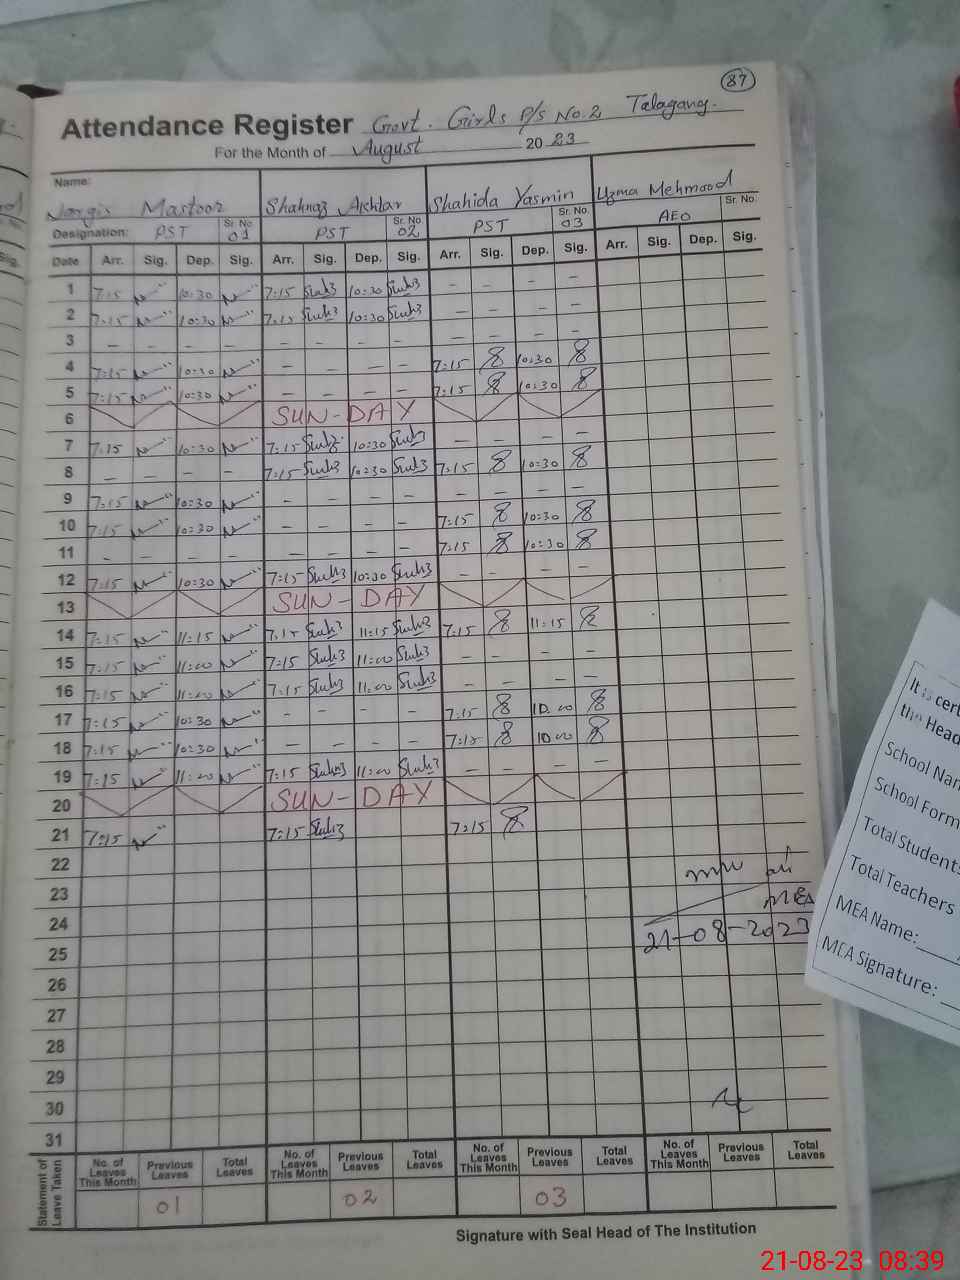 87
Attendance Register Govt. Girls P/S No.2 Talagang.
For the Month of August 2023
Name:
Nargis Mastoor Shahnaz Akhtar Shahida Yasmin Uzma Mehmood
Designation: PST Sr. No. 01 PST Sr. No. 02 PST Sr. No. 03 AEO Sr. No.
Date Arr. Sig. Dep. Sig. Arr. Sig. Dep. Sig. Arr. Sig. Dep. Sig. Arr. Sig. Dep. Sig.
1 7:15 10:30 7:15 10:30 - - - -
2 7:15 10:30 7:15 10:30 - - - -
3 - - - - - - - - - - - -
4 7:15 10:30 - - - - 7:15 10:30
5 7:15 10:30 - - - - 7:15 10:30
6 SUN-DAY
7 7:15 10:30 7:15 10:30 - - - -
8 - - - - 7:15 10:30 7:15 10:30
9 7:15 10:30 - - - - - - - -
10 7:15 10:30 - - - - 7:15 10:30
11 - - - - - - - - 7:15 10:30
12 7:15 10:30 7:15 10:30 - - - -
13 SUN-DAY
14 7:15 11:15 7:15 11:15 7:15 11:15
15 7:15 11:00 7:15 11:00 - - - -
16 7:15 11:00 7:15 11:00 - - - -
17 7:15 10:30 - - - - 7:15 10.00
18 7:15 10:30 - - - - 7:15 10.00
19 7:15 11:00 7:15 11:00 - - - -
20 SUN-DAY
21 7:15 7:15 7:15
22
23
24 MEA
25 21-08-2023
26
27
28
29
30
31
Statement of Leave Taken
No. of Leaves This Month Previous Leaves Total Leaves No. of Leaves This Month Previous Leaves Total Leaves No. of Leaves This Month Previous Leaves Total Leaves No. of Leaves This Month Previous Leaves Total Leaves
01 02 03
Signature with Seal Head of The Institution
It is cert
the Head
School Nam
School Form
Total Students
Total Teachers
MEA Name:
MEA Signature:
Sig.
21-08-23 08:39